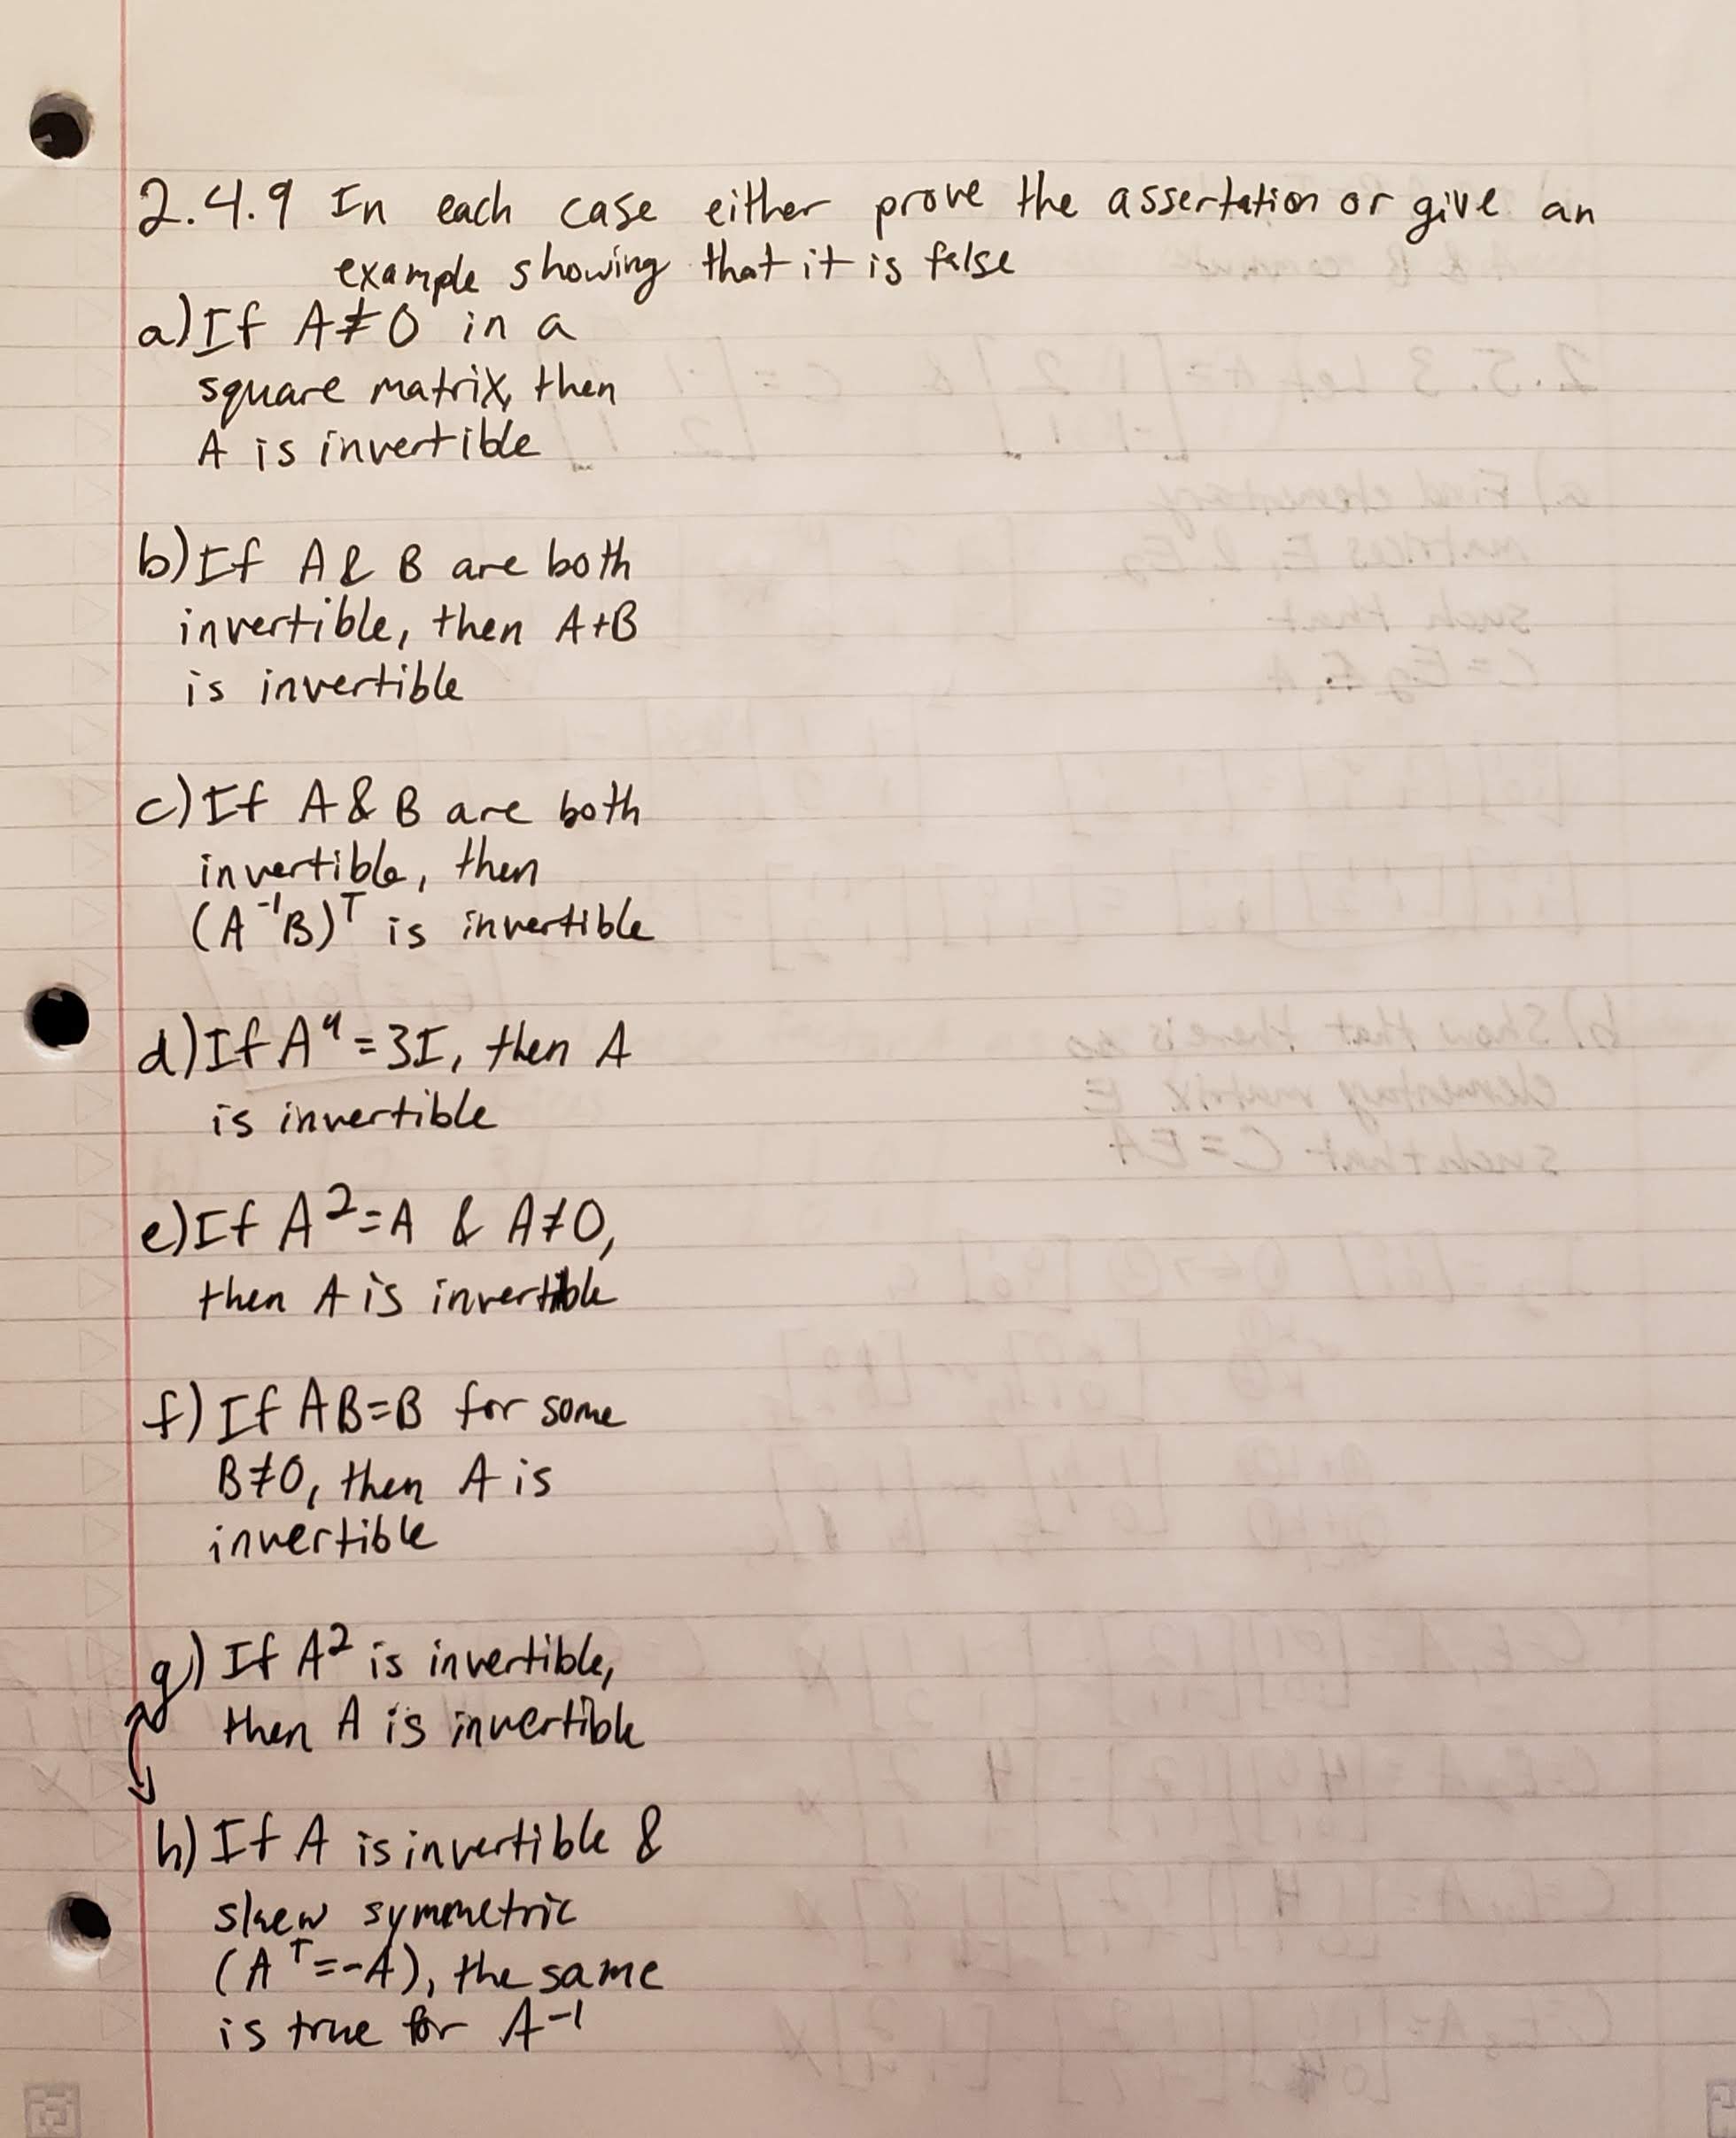 2.4.9 In each case either prove the assertation or give an
example showing that it is false
a) If A≠0 in a
square matrix, then
A is invertible
b) If A & B are both
invertible, then A+B
is invertible
c) If A & B are both
invertible, then
(A⁻¹B)ᵀ is invertible
d) If A⁴=3I, then A
is invertible
e) If A²=A & A≠0,
then A is invertible
f) If AB=B for some
B≠0, then A is
invertible
g) If A² is invertible,
then A is invertible
h) If A is invertible &
skew symmetric
(Aᵀ=-A), the same
is true for A⁻¹